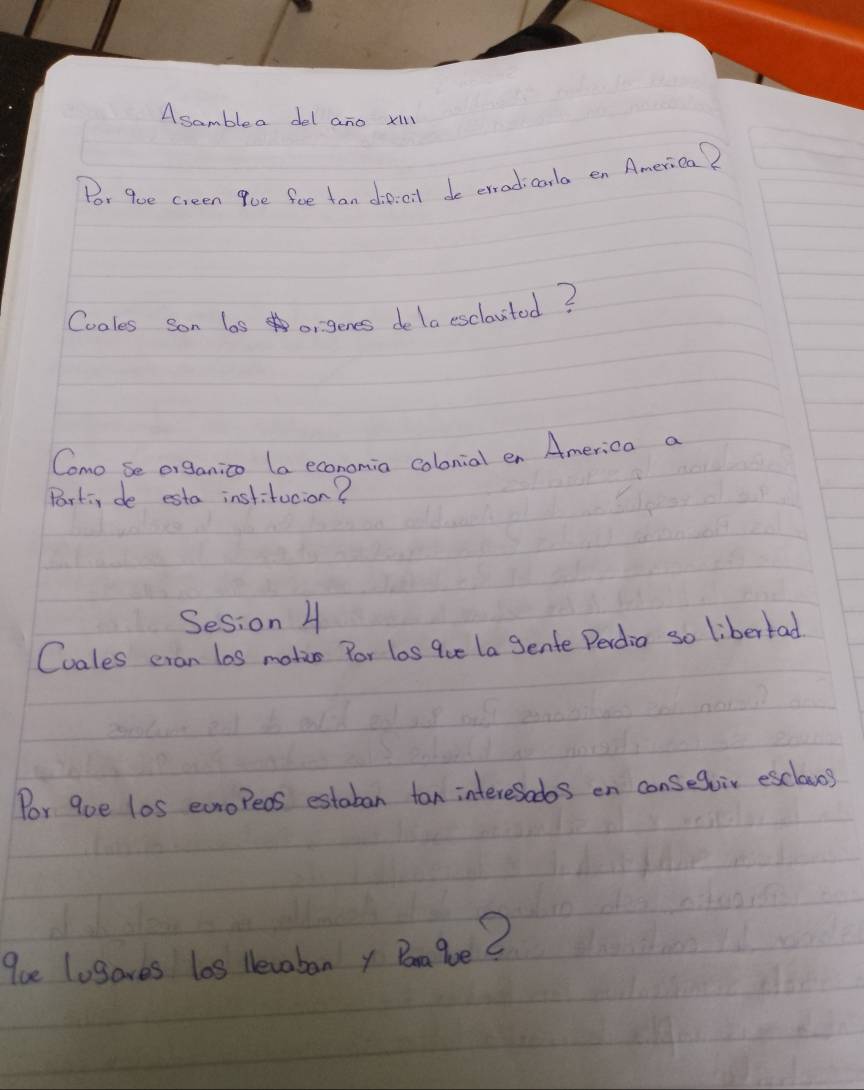 Asamblea del año XIII
Por que creen que fue tan dificil de erradicarla en America?
Cuales son los origenes de la esclavitud?
Como se organizo la economia colonial en America a
Partir de esta institucion?
Sesion 4
Cuales eran los motivos Por los que la gente Perdio so libertad
Por que los euroPeos estaban tan interesados en conseguir esclavos
que lugares los llevaban y Para que?